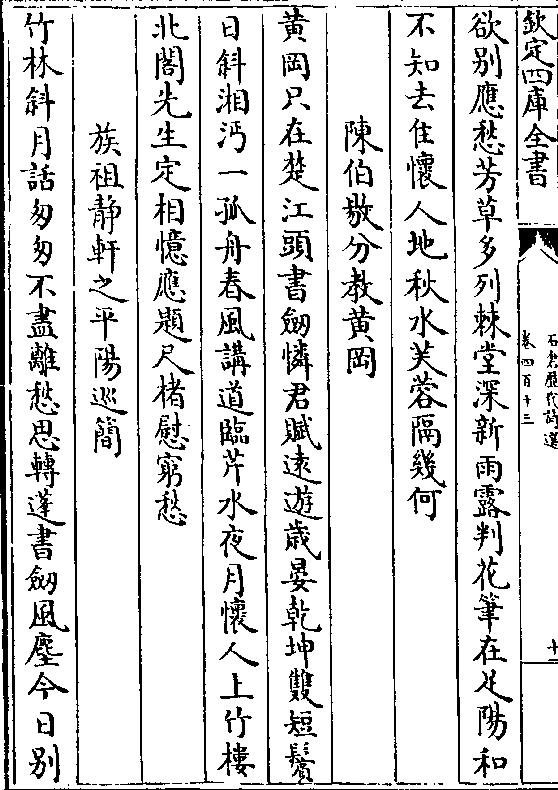 欽定四庫全書
石倉歷代詩選
卷四百十三
十一
欲别應愁芳草多列棘堂深新雨露判花筆在足陽和
不知去住懷人地秋水芙蓉隔幾何
陳伯敬分教黄岡
黄岡只在楚江頭書劒憐君賦遠遊歲晏乾坤雙短鬢
日斜湘沔一孤舟春風講道臨芹水夜月懷人上竹樓
北閣先生定相憶應題尺楮慰窮愁
族祖静軒之平陽巡簡
竹林斜月話匆匆不盡離愁思轉蓬書劒風塵今日别